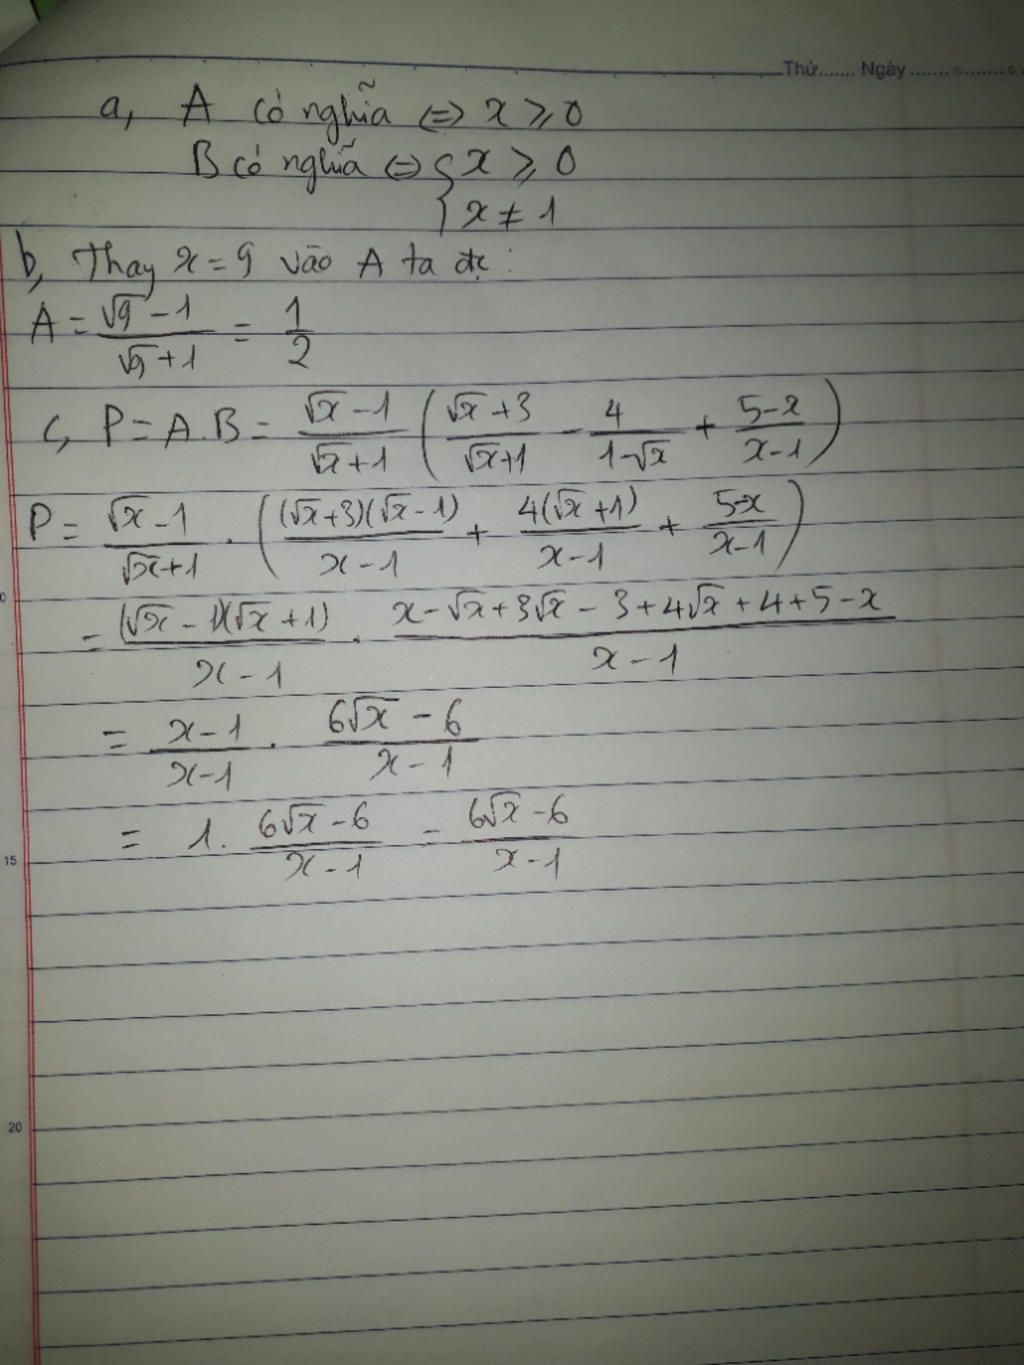 Thứ....... Ngày
a, A có nghĩa ⇔ x ⩾ 0
B có nghĩa ⇔ { x ⩾ 0
x ≠ 1
b, Thay x = 9 vào A ta đc :
A = (√9 - 1)/(√9 + 1) = 1/2
c, P = A.B = (√x - 1)/(√x + 1) ( (√x + 3)/(√x + 1) - 4/(1 - √x) + (5 - x)/(x - 1) )
P = (√x - 1)/(√x + 1) . ( (√x + 3)(√x - 1)/(x - 1) + 4(√x + 1)/(x - 1) + (5 - x)/(x - 1) )
= (√x - 1)(√x + 1)/(x - 1) . (x - √x + 3√x - 3 + 4√x + 4 + 5 - x)/(x - 1)
= (x - 1)/(x - 1) . (6√x - 6)/(x - 1)
= 1. (6√x - 6)/(x - 1) = (6√x - 6)/(x - 1)
15
20